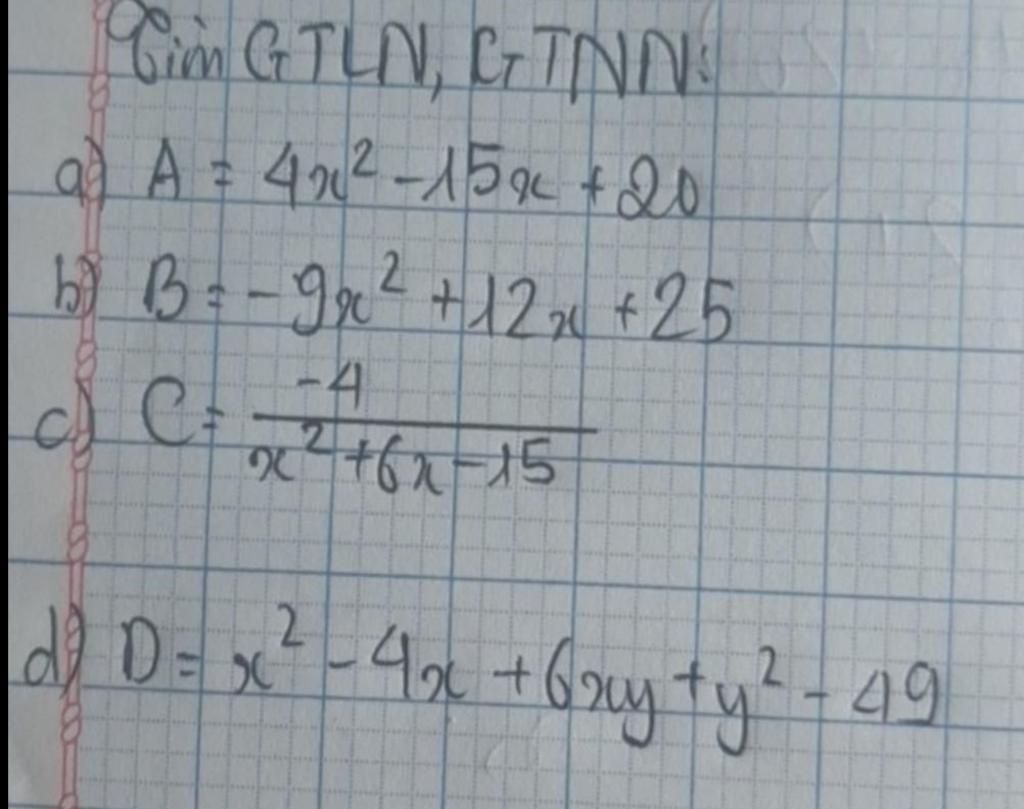 Tìm GTLN, GTNN:
a) A = 4x² - 15x + 20
b) B = -9x² + 12x + 25
c) C = \frac{-4}{x² + 6x - 15}
d) D = x² - 4x + 6xy + y² - 49